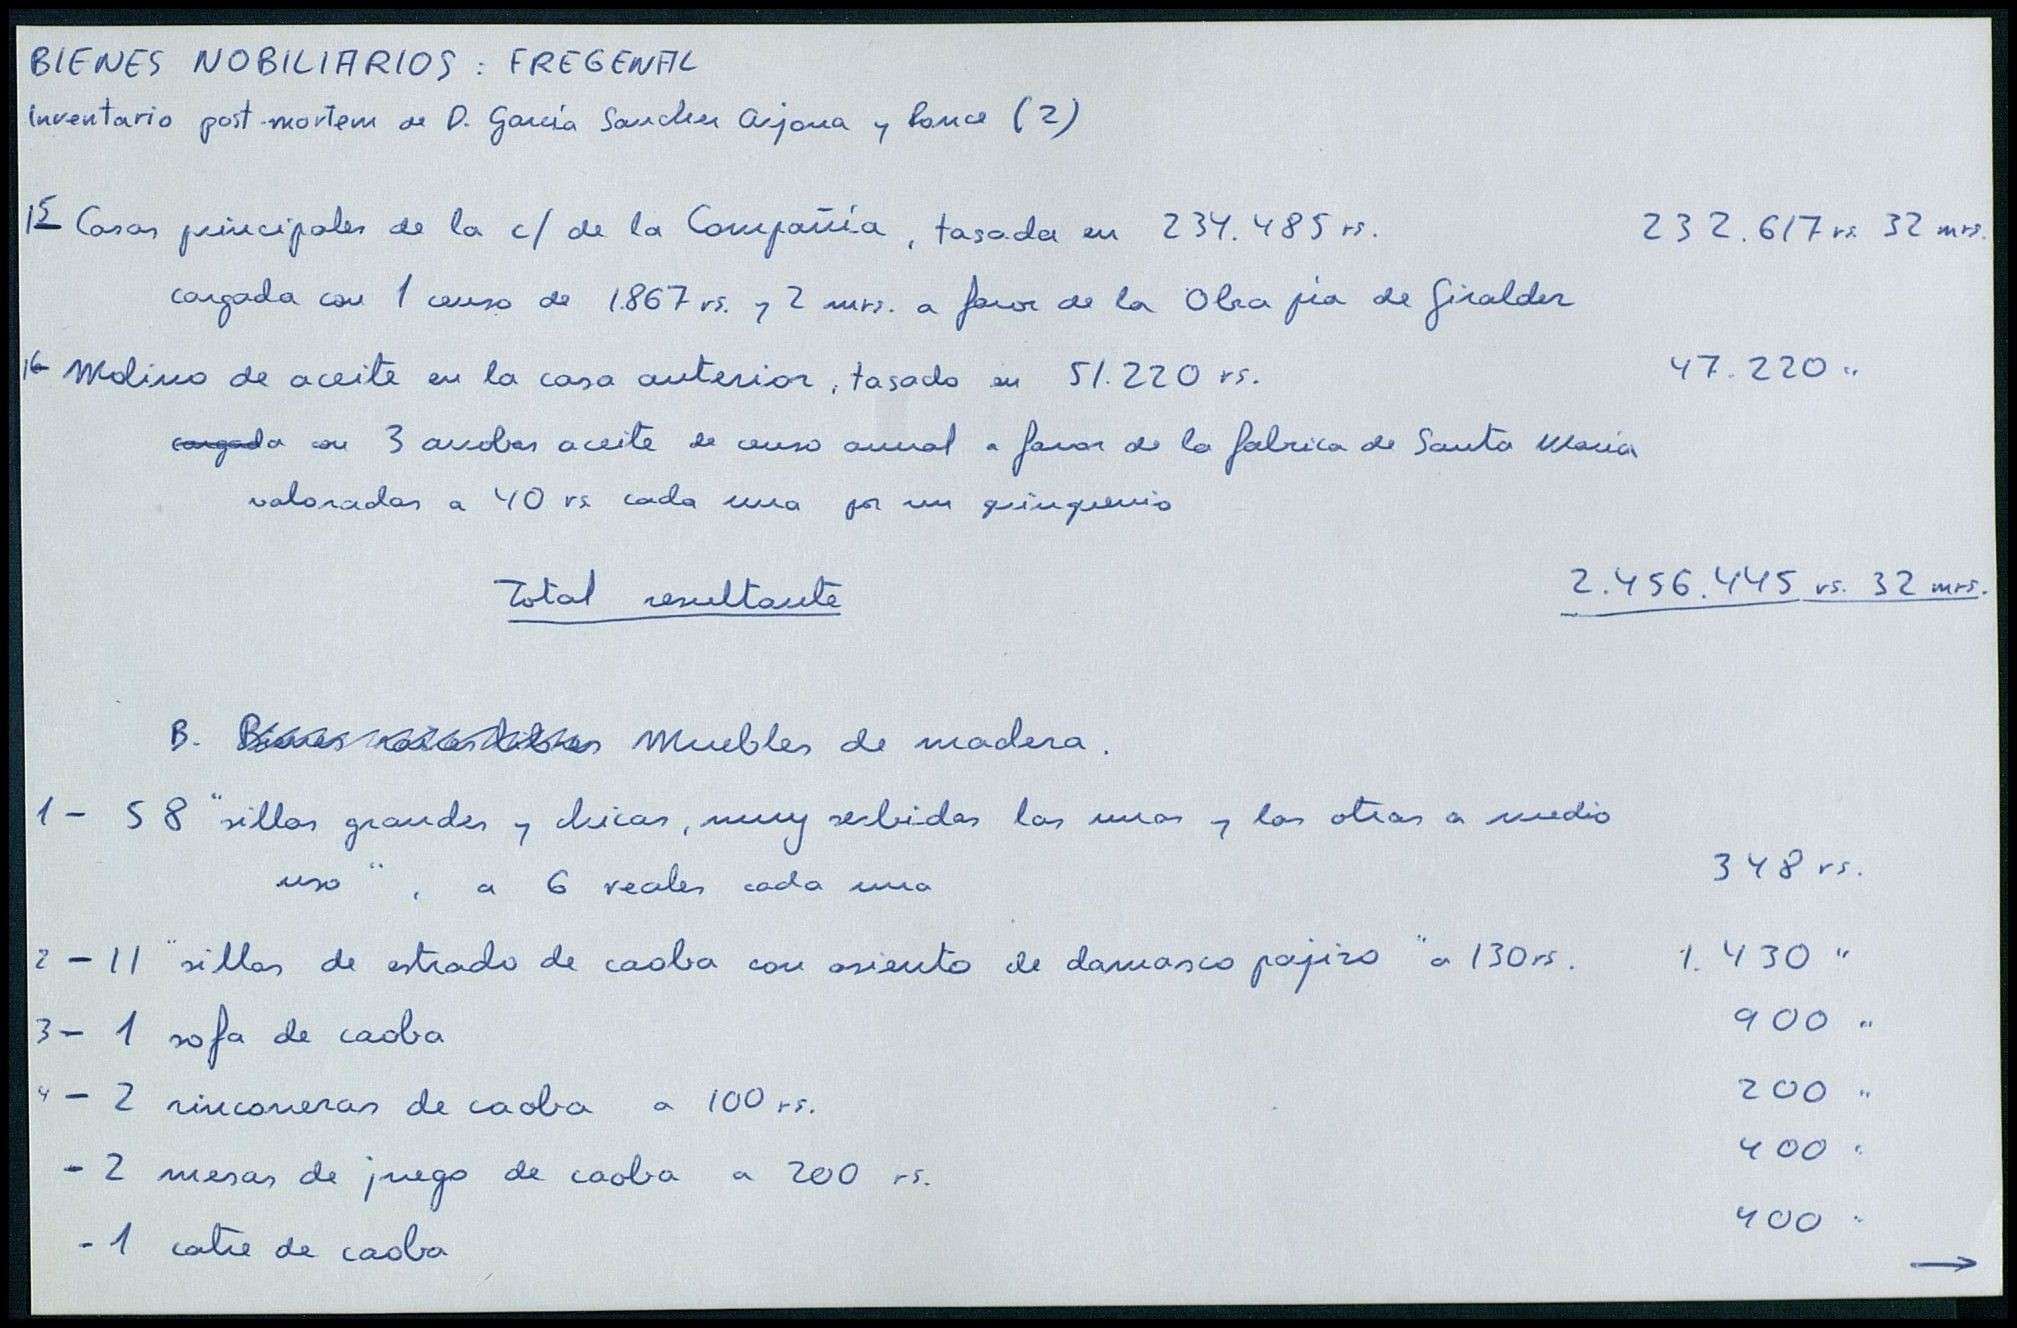 BIENES NOBILIARIOS: FREGENAL
Inventario post-mortem de D. García Sanchez Arjona y Ponce (2)
15 Casas principales de la c/ de la Compañía, tasada en 234.485 rs. 232.617 rs. 32 mrs.
cargada con 1 censo de 1.867 rs. y 2 mrs. a favor de la Obra pía de Giraldez
16 Molino de aceite en la casa anterior, tasado en 51.220 rs. 47.220 "
cargada con 3 arrobas aceite de censo anual a favor de la fabrica de Santa María
valoradas a 40 rs cada una por un quinquenio
Total resultante 2.456.445 rs. 32 mrs.
B. Bienes Muebles de madera.
1 - 58 "sillas grandes y chicas, muy serbidas las unas y las otras a medio
uso", a 6 reales cada una 348 rs.
2 - 11 "sillas de estrado de caoba con asiento de damasco pajizo" a 130 rs. 1.430 "
3 - 1 sofa de caoba 900 "
4 - 2 rinconeras de caoba a 100 rs. 200 "
- 2 mesas de juego de caoba a 200 rs. 400 "
- 1 catre de caoba 400 "
→